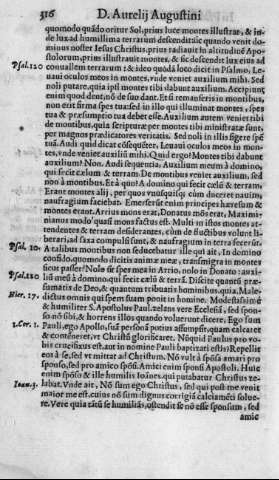 316 D. Aurelij Augustini
quomodo quãdo oritur Sol, prius luce montes illustrat, & in-
de lux ad humillima terrarum descendit: sic quando venit do-
minus noster Iesus Christus, prius radiauit in altitudinẽ Apo-
stolorum, prius illustrauit montes, & sic descendit lux eius ad
Psal. 120 conuallem terrarum: & ideo quodã loco dicit in Psalmo, Le-
uaui oculos meos in montes, vnde veniet auxilium mihi. Sed
noli putare, quia ipsi montes tibi dabunt auxilium. Accipiunt
enim quod dent, nõ de suo dant. Et si remanseris in montibus,
non erit firma spes tua: sed in illo qui illuminat montes, spes
tua & præsumptio tua debet esse. Auxilium autem veniet tibi
de montibus, quia scripturæ per montes tibi ministratæ sunt:
per magnos prædicatores veritatis. Sed noli in illis figere spẽ
tuã. Audi quid dicat cõsequẽter. Leuaui oculos meos in mon-
tes, vnde veniet auxiliũ mihi. Quid ergo? Montes tibi dabunt
auxilium? Non. Audi sequentia. Auxilium meum à domino,
qui fecit cælum & terram. De montibus veniet auxilium, sed
nõ à montibus. Et à quo? A domino qui fecit cælũ & terram.
Erant montes alij, per quos vnusquisq; cùm dirigeret nauim,
naufragium faciebat. Emerserũt enim principes hæresum &
montes erant. Arrius mons erat, Donatus mõs erat, Maximi-
nianus modò quasi mons factus est. Multi in istos montes at-
tendentes & terram desiderantes, cùm de fluctibus volunt li-
berari, ad saxa compulsi sunt, & naufragium in terra fecerũt.
Psal. 10. A talibus montibus non seducebatur ille qui ait, In domino
confido, quomodo dicitis animæ meæ, transmigra in montes
sicut passer? Nolo sit spes mea in Arrio, nolo in Donato: auxi-
Psal. 120 liũ meũ à domino, qui fecit cælũ & terrã. Discite quanti præ-
sumatis de Deo, & quantum tribuatis hominibus, quia Male-
Hier. 17. dictus omnis qui spem suam ponit in homine. Modestissimè
& humiliter S. Apostolus Paul. zelans vere Ecclesiã, sed spon-
so nõ sibi, & horrens illos quando voluerunt dicere, Ego sum
1. Cor. 1. Pauli, ego Apollo, suã personã potius assumpsit, quam calcaret
& contereret, vt Christũ glorificaret. Nõquid Paulus pro vo-
bis crucifixus est, aut in nomine Pauli baptizati estis? Repellit
eos à se, sed vt mittat ad Christum. Nõ vult à spõsa amari pro
sponso, sed pro amico spõsi. Amici enim sponsi Apostoli. Huic
enim spõso & ille humilis Ioãnes, qui putabatur Christus ze-
Ioan. 3. labat. Vnde ait, Nõ sum ego Christus, sed qui post me venit
maior me est, cuius nõ sum dignus corrigiã calciamẽti solue-
re. Vere quia cũ tũ se humiliãs, ostendit se nõ esse sponsum, sed
amic